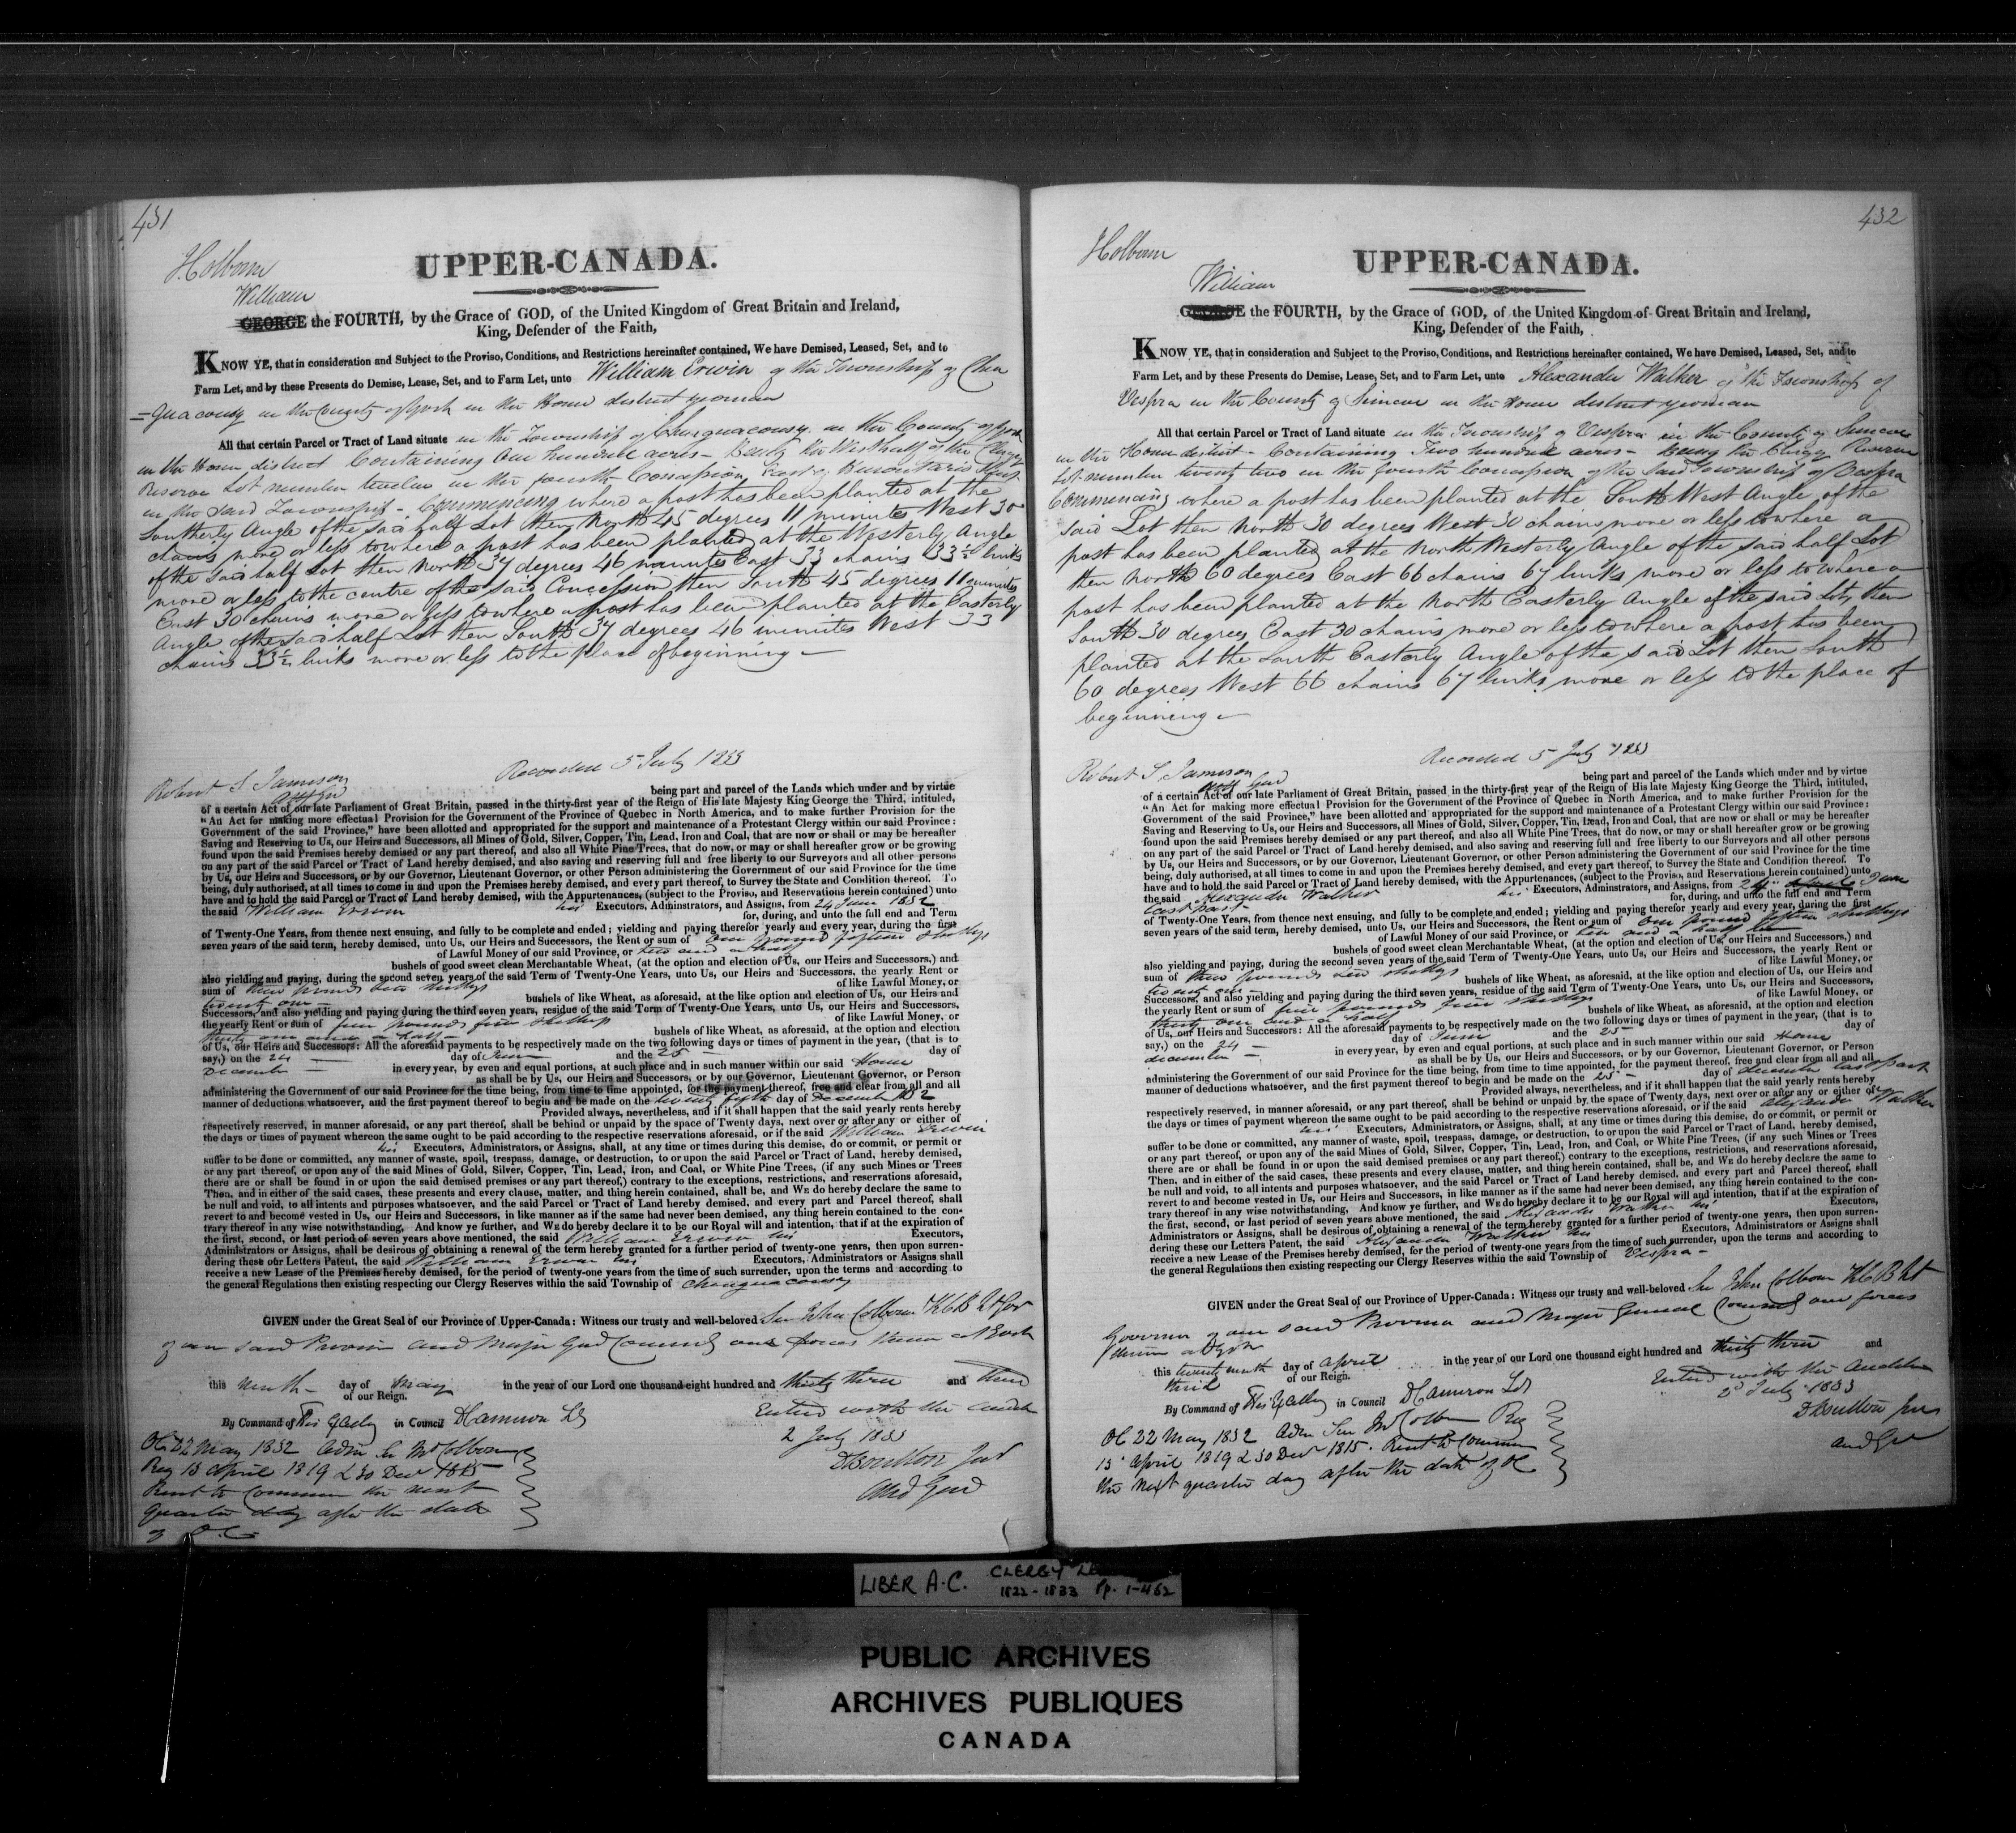 431
Holborne
UPPER-CANADA.
William
GEORGE the FOURTH, by the Grace of GOD, of the United Kingdom of Great Britain and Ireland,
King, Defender of the Faith,
KNOW YE, that in consideration and Subject to the Proviso, Conditions, and Restrictions hereinafter contained, We have Demised, Leased, Set, and to
Farm Let, and by these Presents do Demise, Lease, Set, and to Farm Let, unto William Erwin of the Township of Chin
=guacousy in the County of York in the Home district yeoman
All that certain Parcel or Tract of Land situate in the Township of Chinguacousy in the County of York
in the Home district Containing One hundred acres - Being the West half of the Clergy
Reserve Lot number twelve in the fourth Concession East of Hurontario Street
in the said Township - Commencing where a post has been planted at the
Southerly Angle of the said half Lot then North 45 degrees 11 minutes West 30
chains more or less to where a post has been planted at the Westerly Angle
of the said half Lot then North 37 degrees 46 minutes East 33 chains 33½ links
more or less to the centre of the said Concession then South 45 degrees 11 minutes
East 30 chains more or less to where a post has been planted at the Easterly
Angle of the said half Lot then South 37 degrees 46 minutes West 33
chains 33½ links more or less to the place of beginning -
Recorded 5 July 1833
Robert S Jamison
Atty Gen
being part and parcel of the Lands which under and by virtue
of a certain Act of our late Parliament of Great Britain, passed in the thirty-first year of the Reign of His late Majesty King George the Third, intituled,
"An Act for making more effectual Provision for the Government of the Province of Quebec in North America, and to make further Provision for the
Government of the said Province," have been allotted and appropriated for the support and maintenance of a Protestant Clergy within our said Province:
Saving and Reserving to Us, our Heirs and Successors, all Mines of Gold, Silver, Copper, Tin, Lead, Iron and Coal, that are now or shall or may be hereafter
found upon the said Premises hereby demised or any part thereof, and also all White Pine Trees, that do now, or may or shall hereafter grow or be growing
on any part of the said Parcel or Tract of Land hereby demised, and also saving and reserving full and free liberty to our Surveyors and all other persons
by Us, our Heirs and Successors, or by our Governor, Lieutenant Governor, or other Person administering the Government of our said Province for the time
being, duly authorised, at all times to come in and upon the Premises hereby demised, and every part thereof, to Survey the State and Condition thereof. To
have and to hold the said Parcel or Tract of Land hereby demised, with the Appurtenances, (subject to the Proviso, and Reservations herein contained) unto
the said William Erwin his Executors, Adminstrators, and Assigns, from 24 June 1832
for, during, and unto the full end and Term
of Twenty-One Years, from thence next ensuing, and fully to be complete and ended; yielding and paying therefor yearly and every year, during the first
seven years of the said term, hereby demised, unto Us, our Heirs and Successors, the Rent or sum of One pound fifteen shillings
of Lawful Money of our said Province, or ten and a half
bushels of good sweet clean Merchantable Wheat, (at the option and election of Us, our Heirs and Successors,) and
also yielding and paying, during the second seven years of the said Term of Twenty-One Years, unto Us, our Heirs and Successors, the yearly Rent or
sum of three pounds ten shillings of like Lawful Money, or
twenty one - bushels of like Wheat, as aforesaid, at the like option and election of Us, our Heirs and
Successors, and also yielding and paying during the third seven years, residue of the said Term of Twenty-One Years, unto Us, our Heirs and Successors,
the yearly Rent or sum of five pounds five shillings of like Lawful Money, or
thirty one and a half - bushels of like Wheat, as aforesaid, at the option and election
of Us, our Heirs and Successors: All the aforesaid payments to be respectively made on the two following days or times of payment in the year, (that is to
say,) on the 24 - day of June and the 25 - day of
December - in every year, by even and equal portions, at such place and in such manner within our said Home
as shall be by Us, our Heirs and Successors, or by our Governor, Lieutenant Governor, or Person
administering the Government of our said Province for the time being, from time to time appointed, for the payment thereof, free and clear from all and all
manner of deductions whatsoever, and the first payment thereof to begin and be made on the twenty fifth day of December 1832
Provided always, nevertheless, and if it shall happen that the said yearly rents hereby
respectively reserved, in manner aforesaid, or any part thereof, shall be behind or unpaid by the space of Twenty days, next over or after any or either of
the days or times of payment whereon the same ought to be paid according to the respective reservations aforesaid, or if the said William Erwin
his Executors, Administrators, or Assigns, shall, at any time or times during this demise, do or commit, or permit or
suffer to be done or committed, any manner of waste, spoil, trespass, damage, or destruction, to or upon the said Parcel or Tract of Land, hereby demised,
or any part thereof, or upon any of the said Mines of Gold, Silver, Copper, Tin, Lead, Iron, and Coal, or White Pine Trees, (if any such Mines or Trees
there are or shall be found in or upon the said demised premises or any part thereof,) contrary to the exceptions, restrictions, and reservations aforesaid,
Then, and in either of the said cases, these presents and every clause, matter, and thing herein contained, shall be, and WE do hereby declare the same to
be null and void, to all intents and purposes whatsoever, and the said Parcel or Tract of Land hereby demised, and every part and Parcel thereof, shall
revert to and become vested in Us, our Heirs and Successors, in like manner as if the same had never been demised, any thing herein contained to the con-
trary thereof in any wise notwithstanding, And know ye further, and WE do hereby declare it to be our Royal will and intention, that if at the expiration of
the first, second, or last period of seven years above mentioned, the said William Erwin his Executors,
Administrators or Assigns, shall be desirous of obtaining a renewal of the term hereby granted for a further period of twenty-one years, then upon surren-
dering these our Letters Patent, the said William Erwin his Executors, Administrators or Assigns shall
receive a new Lease of the Premises hereby demised, for the period of twenty-one years from the time of such surrender, upon the terms and according to
the general Regulations then existing respecting our Clergy Reserves within the said Township of Chinguacousy
GIVEN under the Great Seal of our Province of Upper-Canada: Witness our trusty and well-beloved Sir John Colborne KCB Lt Gov
of our said Province and Major Genl Commg our forces therein at York
this ninth - day of May in the year of our Lord one thousand eight hundred and thirty three and third
of our Reign.
By Command of His Excelley in Council D Cameron Sy
OC 22 May 1832 Admn Sir Jno Colborne
Reg 13 April 1819 & 30 Decr 1815
Rent to Commence the next
quarter day after the date
of O.C.
Entered with the Auditor
2 July 1833
D Boulton Jun
Aud Genl
432
Holborne
UPPER-CANADA.
William
GEORGE the FOURTH, by the Grace of GOD, of the United Kingdom of Great Britain and Ireland,
King, Defender of the Faith,
KNOW YE, that in consideration and Subject to the Proviso, Conditions, and Restrictions hereinafter contained, We have Demised, Leased, Set, and to
Farm Let, and by these Presents do Demise, Lease, Set, and to Farm Let, unto Alexander Walker of the Township of
Vespra in the County of Simcoe in the Home district yeoman
All that certain Parcel or Tract of Land situate in the Township of Vespra in the County of Simcoe
in the Home district - Containing Two hundred acres - being the Clergy Reserve
Lot number twenty two in the fourth Concession of the said Township of Vespra
Commencing where a post has been planted at the South West Angle of the
said Lot then North 30 degrees West 30 chains more or less to where a
post has been planted at the North Westerly Angle of the said half Lot
then North 60 degrees East 66 chains 67 links more or less to where a
post has been planted at the North Easterly Angle of the said Lot, then
South 30 degrees East 30 chains more or less to where a post has been
planted at the South Easterly Angle of the said Lot then South
60 degrees West 66 chains 67 links more or less to the place of
beginning -
Recorded 5 July 1833
Robert S Jamison
Atty Genl
being part and parcel of the Lands which under and by virtue
of a certain Act of our late Parliament of Great Britain, passed in the thirty-first year of the Reign of His late Majesty King George the Third, intituled,
"An Act for making more effectual Provision for the Government of the Province of Quebec in North America, and to make further Provision for the
Government of the said Province," have been allotted and appropriated for the support and maintenance of a Protestant Clergy within our said Province:
Saving and Reserving to Us, our Heirs and Successors, all Mines of Gold, Silver, Copper, Tin, Lead, Iron and Coal, that are now or shall or may be hereafter
found upon the said Premises hereby demised or any part thereof, and also all White Pine Trees, that do now, or may or shall hereafter grow or be growing
on any part of the said Parcel or Tract of Land hereby demised, and also saving and reserving full and free liberty to our Surveyors and all other persons
by Us, our Heirs and Successors, or by our Governor, Lieutenant Governor, or other Person administering the Government of our said Province for the time
being, duly authorised, at all times to come in and upon the Premises hereby demised, and every part thereof, to Survey the State and Condition thereof. To
have and to hold the said Parcel or Tract of Land hereby demised, with the Appurtenances, (subject to the Proviso, and Reservations herein contained) unto
the said Alexander Walker his Executors, Adminstrators, and Assigns, from 24 June
last past for, during, and unto the full end and Term
of Twenty-One Years, from thence next ensuing, and fully to be complete and ended; yielding and paying therefor yearly and every year, during the first
seven years of the said term, hereby demised, unto Us, our Heirs and Successors, the Rent or sum of One pound fifteen shillings
of Lawful Money of our said Province, or ten and a half
bushels of good sweet clean Merchantable Wheat, (at the option and election of Us, our Heirs and Successors,) and
also yielding and paying, during the second seven years of the said Term of Twenty-One Years, unto Us, our Heirs and Successors, the yearly Rent or
sum of three pounds ten shillings of like Lawful Money, or
twenty one - bushels of like Wheat, as aforesaid, at the like option and election of Us, our Heirs and
Successors, and also yielding and paying during the third seven years, residue of the said Term of Twenty-One Years, unto Us, our Heirs and Successors,
the yearly Rent or sum of five pounds five shillings of like Lawful Money, or
thirty one and a half bushels of like Wheat, as aforesaid, at the option and election
of Us, our Heirs and Successors: All the aforesaid payments to be respectively made on the two following days or times of payment in the year, (that is to
say,) on the 24 - day of June and the 25 - day of
december - in every year, by even and equal portions, at such place and in such manner within our said Home
as shall be by Us, our Heirs and Successors, or by our Governor, Lieutenant Governor, or Person
administering the Government of our said Province for the time being, from time to time appointed, for the payment thereof, free and clear from all and all
manner of deductions whatsoever, and the first payment thereof to begin and be made on the 25 - day of december last past
Provided always, nevertheless, and if it shall happen that the said yearly rents hereby
respectively reserved, in manner aforesaid, or any part thereof, shall be behind or unpaid by the space of Twenty days, next over or after any or either of
the days or times of payment whereon the same ought to be paid according to the respective reservations aforesaid, or if the said Alexander Walker
his Executors, Administrators, or Assigns, shall, at any time or times during this demise, do or commit, or permit or
suffer to be done or committed, any manner of waste, spoil, trespass, damage, or destruction, to or upon the said Parcel or Tract of Land, hereby demised,
or any part thereof, or upon any of the said Mines of Gold, Silver, Copper, Tin, Lead, Iron, and Coal, or White Pine Trees, (if any such Mines or Trees
there are or shall be found in or upon the said demised premises or any part thereof,) contrary to the exceptions, restrictions, and reservations aforesaid,
Then, and in either of the said cases, these presents and every clause, matter, and thing herein contained, shall be, and WE do hereby declare the same to
be null and void, to all intents and purposes whatsoever, and the said Parcel or Tract of Land hereby demised, and every part and Parcel thereof, shall
revert to and become vested in Us, our Heirs and Successors, in like manner as if the same had never been demised, any thing herein contained to the con-
trary thereof in any wise notwithstanding, And know ye further, and WE do hereby declare it to be our Royal will and intention, that if at the expiration of
the first, second, or last period of seven years above mentioned, the said Alexander Walker his Executors,
Administrators or Assigns, shall be desirous of obtaining a renewal of the term hereby granted for a further period of twenty-one years, then upon surren-
dering these our Letters Patent, the said Alexander Walker his Executors, Administrators or Assigns shall
receive a new Lease of the Premises hereby demised, for the period of twenty-one years from the time of such surrender, upon the terms and according to
the general Regulations then existing respecting our Clergy Reserves within the said Township of Vespra -
GIVEN under the Great Seal of our Province of Upper-Canada: Witness our trusty and well-beloved Sir John Colborne KCB Lt
Governor of our said Province and Major General Commg our forces
therein at York
this twenty ninth day of April in the year of our Lord one thousand eight hundred and thirty three and
third of our Reign.
By Command of His Excelley in Council D Cameron Sy
OC 22 May 1832 Admn Sir Jno Colborne Reg
13 April 1819 & 30 Decr 1815. Rent to Commence
the next quarter day after the date of OC
Entered with the Auditor
2d July 1833
D Boulton Jun
Aud Genl
LIBER A.C. CLERGY
1822-1833 Pp. 1-462
PUBLIC ARCHIVES
ARCHIVES PUBLIQUES
CANADA